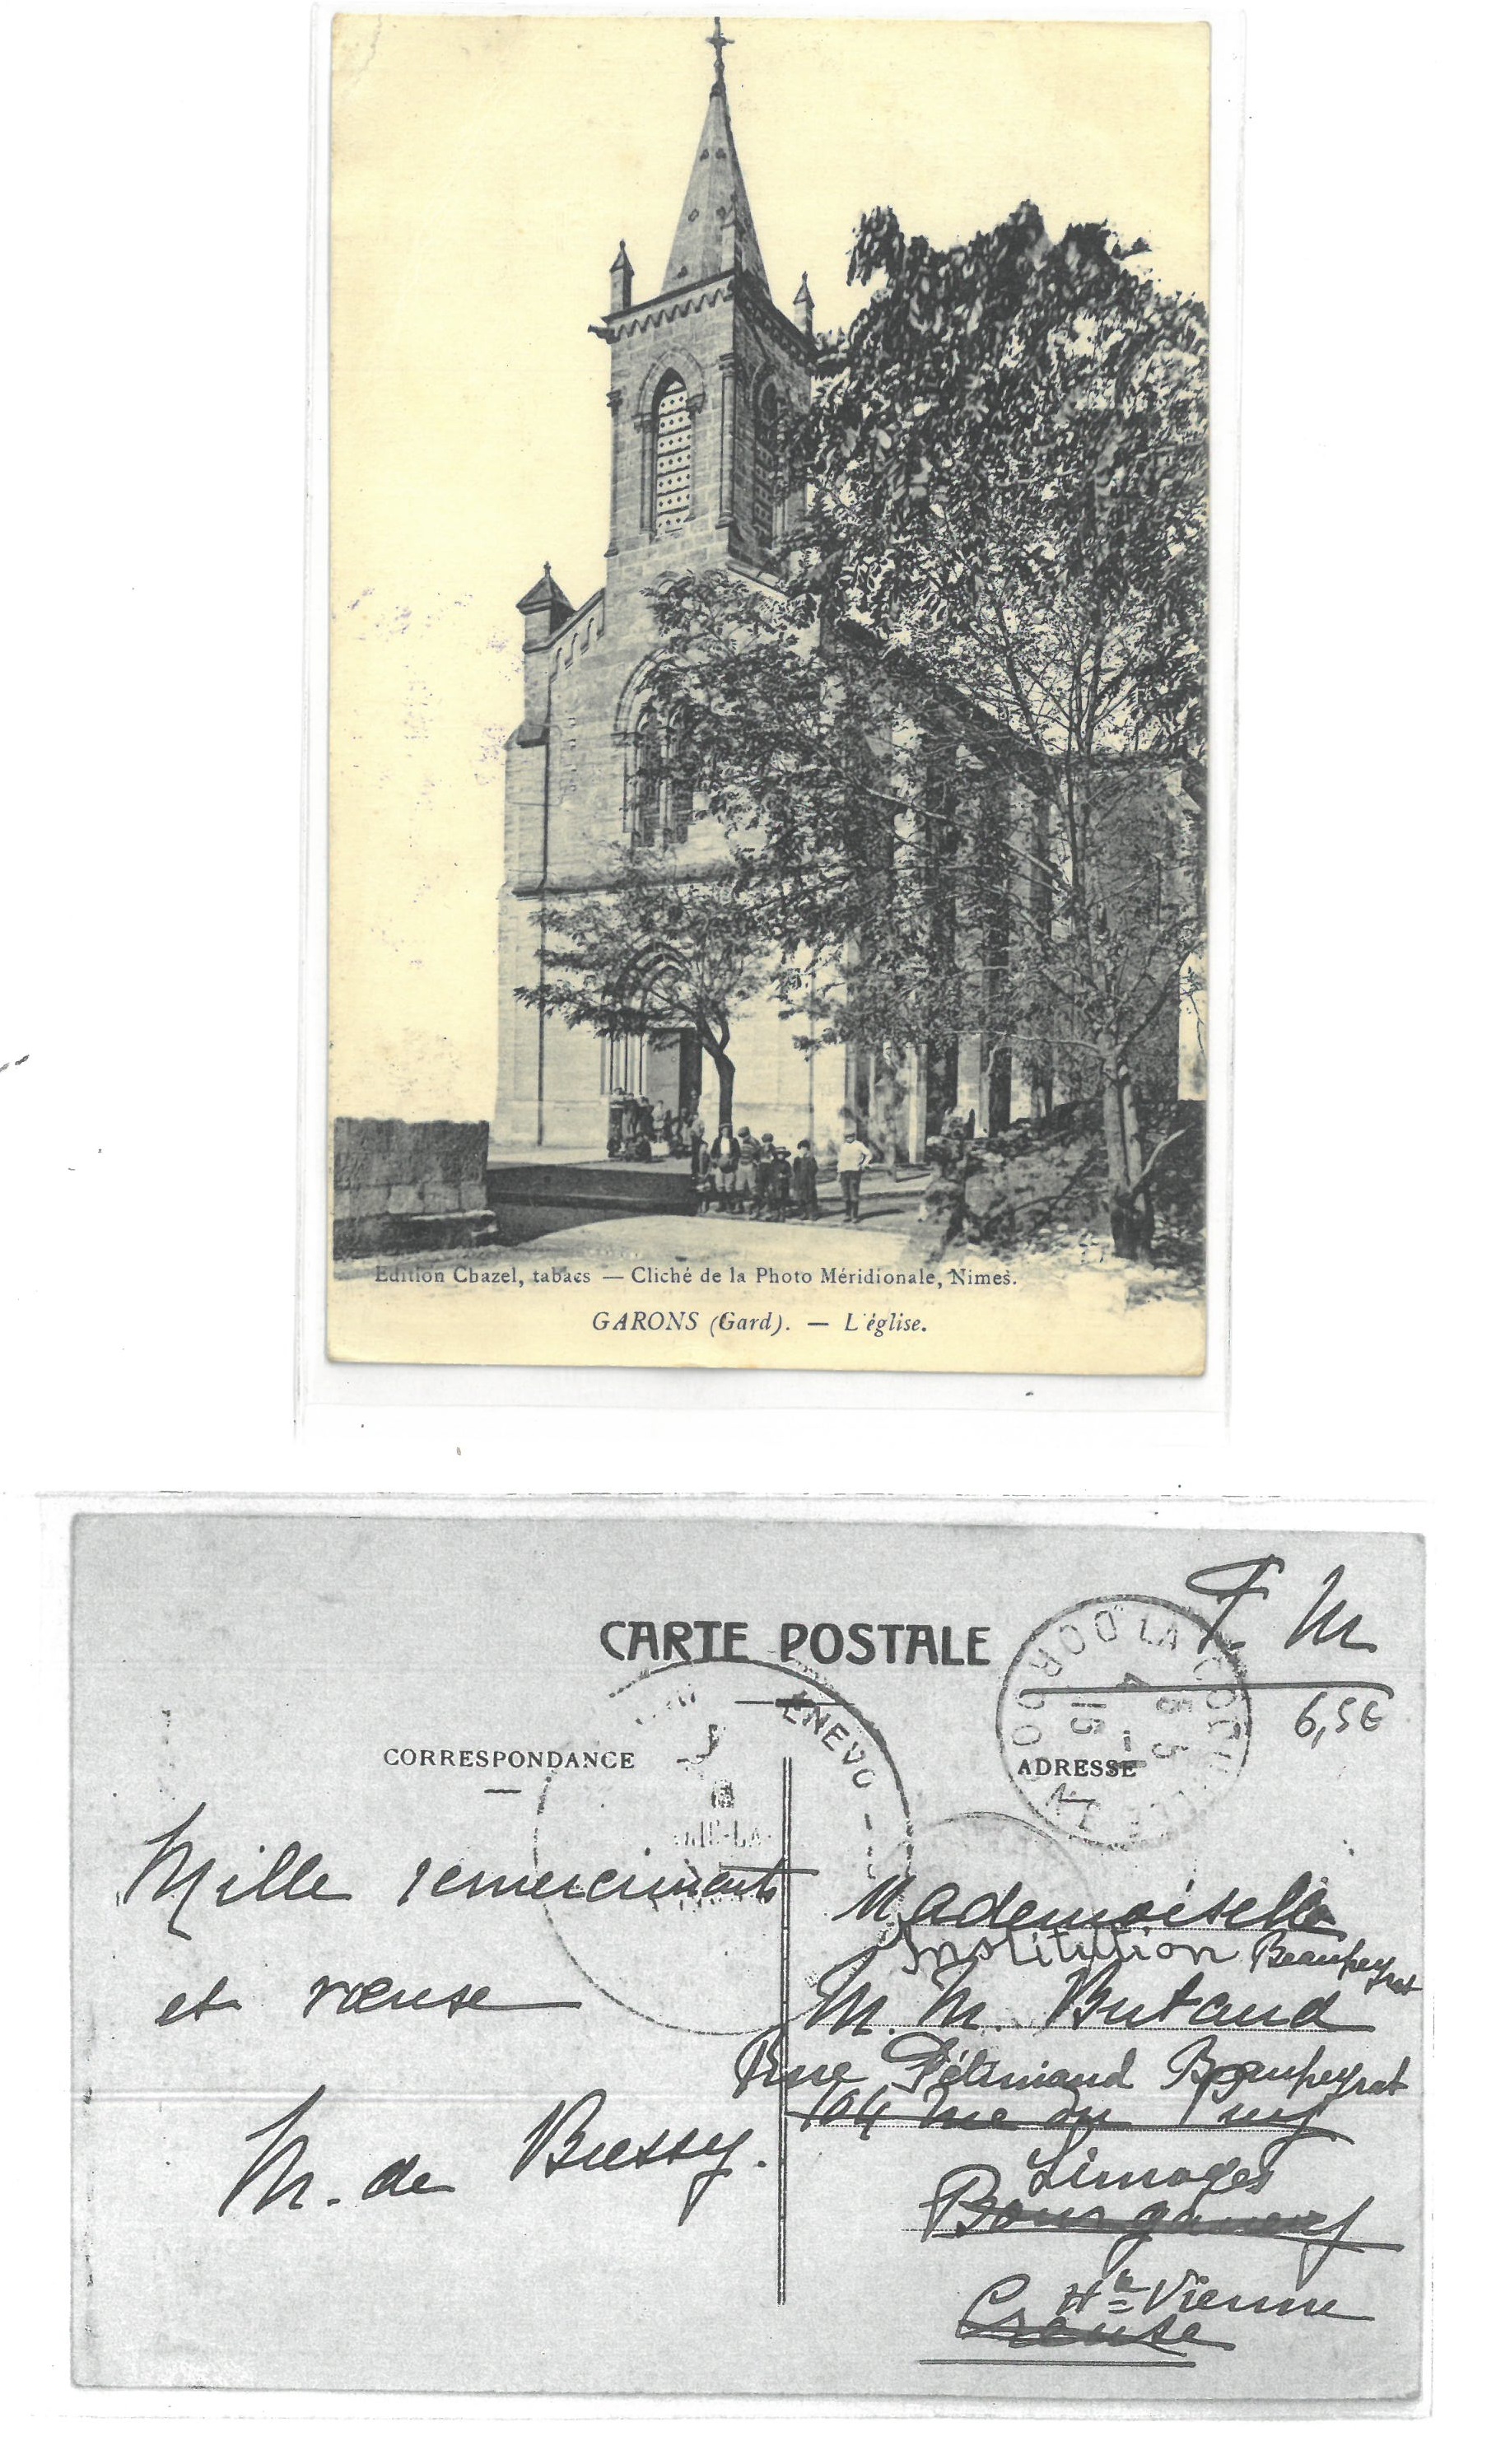 Edition Chazel, tabacs — Cliché de la Photo Méridionale, Nimes.
GARONS (Gard). — L'église.
F. M
CARTE POSTALE
6,5€
CORRESPONDANCE
ADRESSE
Mille remerciments
et
M. de Bressy.
Mademoiselle
Institution Beaupeyrat
M. M. Butaud
Rue Pétiniaud Beaupeyrat
104 rue du Puy
Limoges
Bourganeuf
Hte Vienne
Creuse